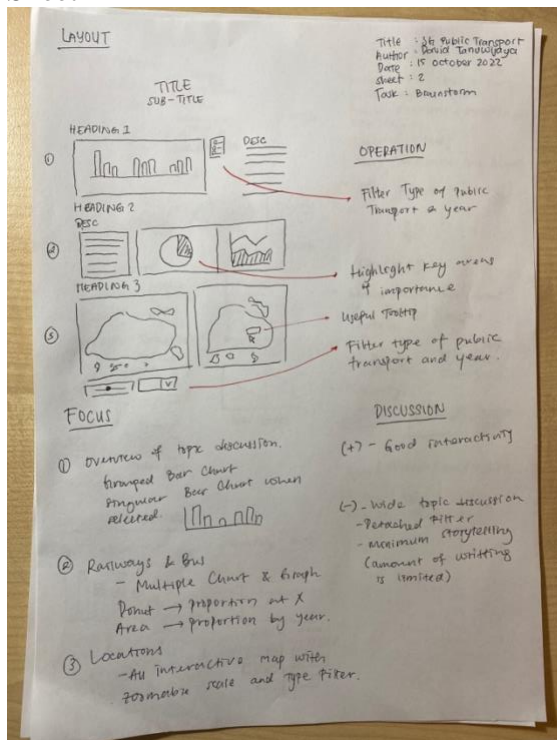 LAYOUT
Title : SG Public Transport
Author : David Tanuwijaya
Date : 15 October 2022
Sheet : 2
Task : Brainstorm
TITLE
SUB-TITLE
HEADING 1
①
DESC
HEADING 2
DESC
②
HEADING 3
③
OPERATION
Filter Type of Public
Transport & year
Highlight key areas
of importance
Useful Tooltip
Filter type of public
transport and year.
FOCUS
① Overview of topic discussion.
Grouped Bar Chart
Singular Bar Chart when
selected.
② Railways & Bus
- Multiple Chart & Graph
Donut → proportion at X
Area → proportion by year.
③ Locations
- All interactive map with
zoomable scale and type filter.
DISCUSSION
(+) - Good interactivity
(-) - Wide topic discussion
- Detached Filter
- Minimum storytelling
(amount of writting
is limited)